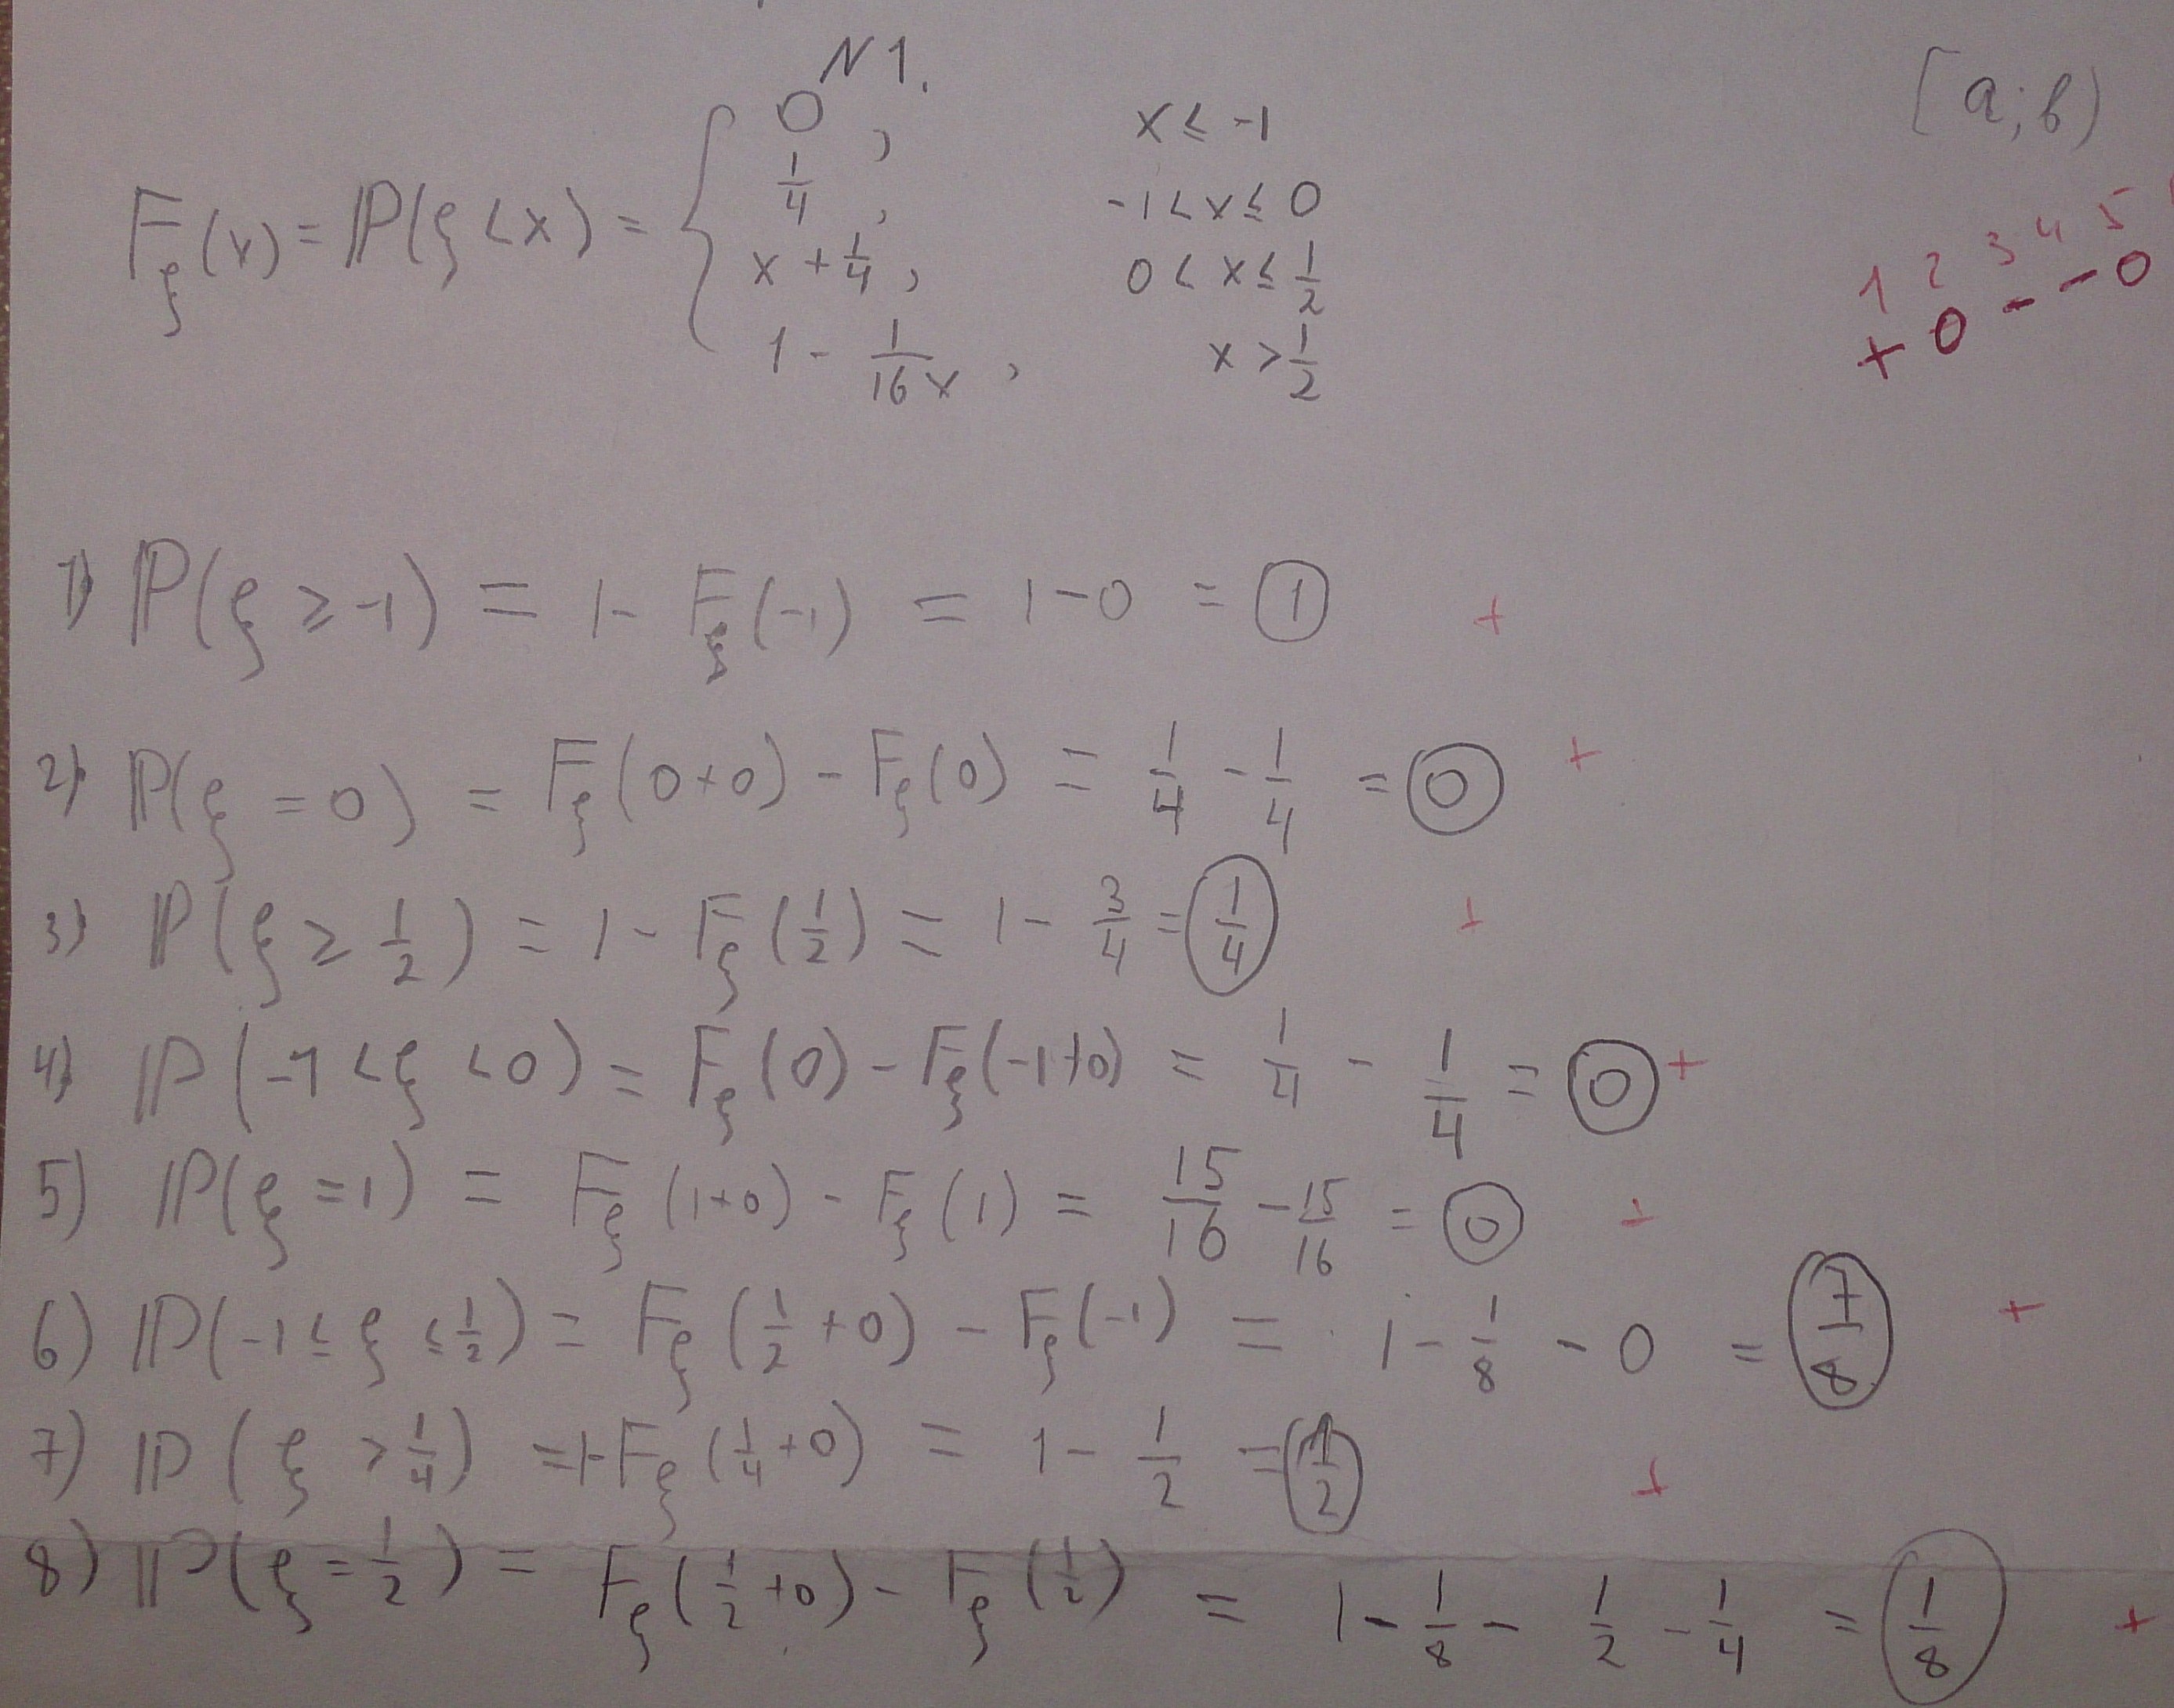 N 1.
[a; b)
F_ξ(x) = ℙ(ξ < x) = {
0, x ≤ -1
1/4, -1 < x ≤ 0
x + 1/4, 0 < x ≤ 1/2
1 - 1/(16x), x > 1/2
1 2 3 4 5
+ 0 - - 0
1) ℙ(ξ ≥ -1) = 1 - F_ξ(-1) = 1 - 0 = 1 +
2) ℙ(ξ = 0) = F_ξ(0+0) - F_ξ(0) = 1/4 - 1/4 = 0 +
3) ℙ(ξ ≥ 1/2) = 1 - F_ξ(1/2) = 1 - 3/4 = 1/4 +
4) ℙ(-1 < ξ < 0) = F_ξ(0) - F_ξ(-1+0) = 1/4 - 1/4 = 0 +
5) ℙ(ξ = 1) = F_ξ(1+0) - F_ξ(1) = 15/16 - 15/16 = 0 +
6) ℙ(-1 ≤ ξ ≤ 1/2) = F_ξ(1/2 + 0) - F_ξ(-1) = 1 - 1/8 - 0 = 7/8 +
7) ℙ(ξ > 1/4) = 1 - F_ξ(1/4 + 0) = 1 - 1/2 = 1/2 +
8) ℙ(ξ = 1/2) = F_ξ(1/2 + 0) - F_ξ(1/2) = 1 - 1/8 - 1/2 - 1/4 = 1/8 +